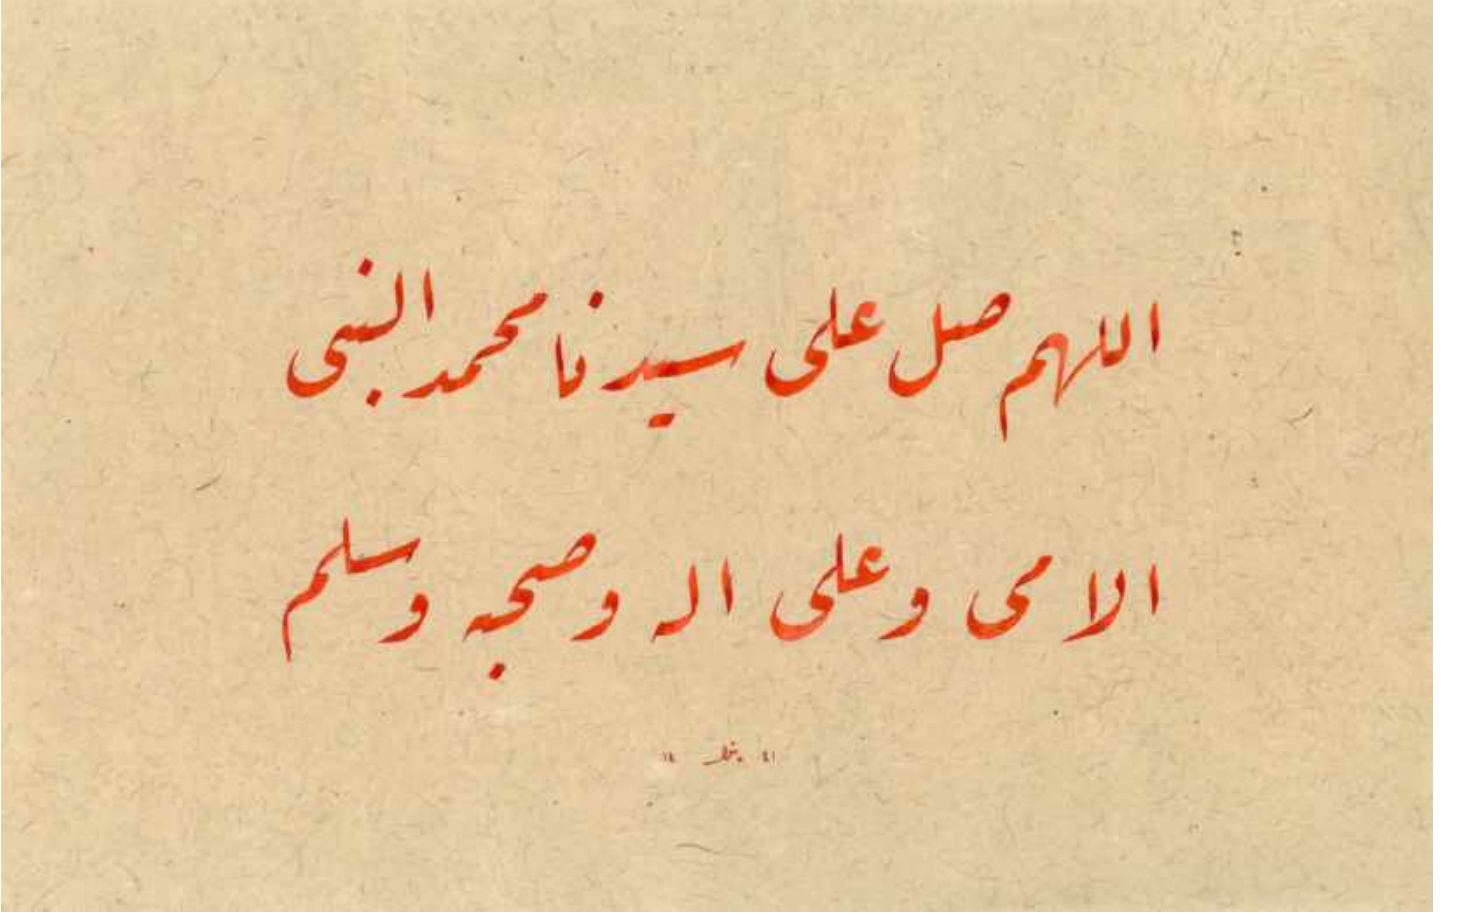 اللهم صل على سيدنا محمد النبى
الامى وعلى اله وصحبه وسلم